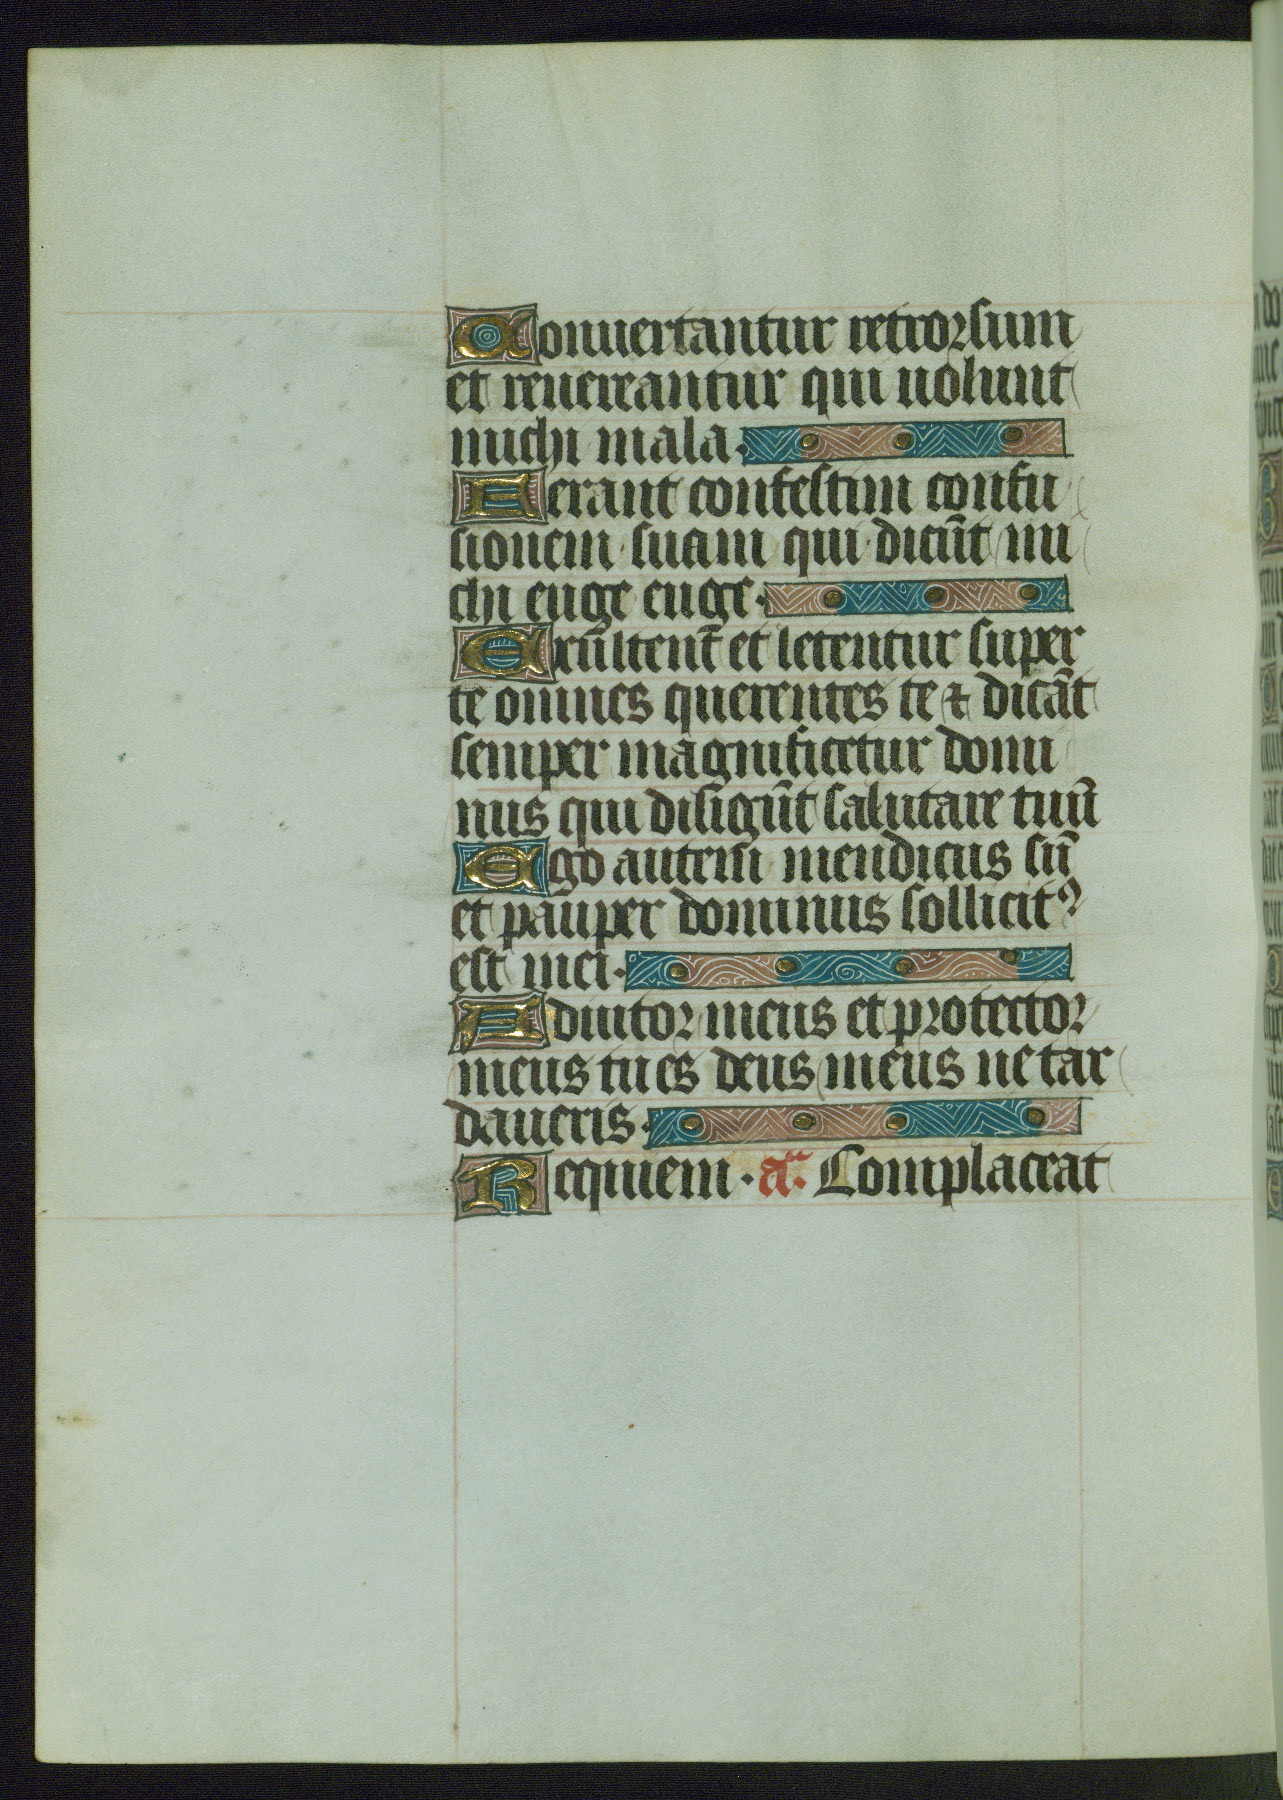 Conuertantur retrorsum
et reuereantur qui uolunt
michi mala.
Ferant confestim confu
sionem suam qui dicūt mi
chi euge euge.
Exultent et letentur super
te omnes querentes te ⁊ dicāt
semper magnificetur domi
nus qui diligūt salutare tuū
Ego autem mendicus sū
et pauper dominus sollicitꝰ
est mei.
Adiutor meus et protector
meus tu es deus meus ne tar
daueris.
Requiem. aͣ. Complaceat